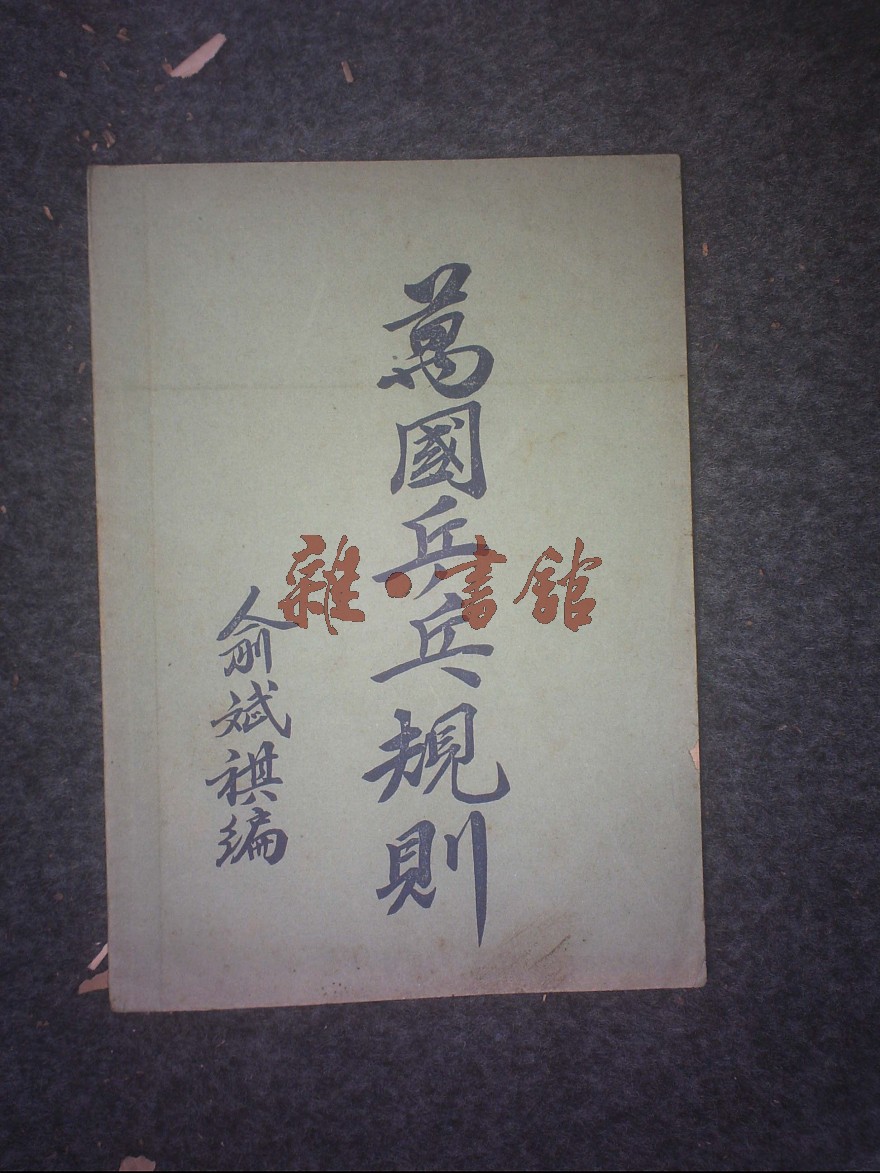 萬國乒乓規則
俞斌祺编
雜·書館